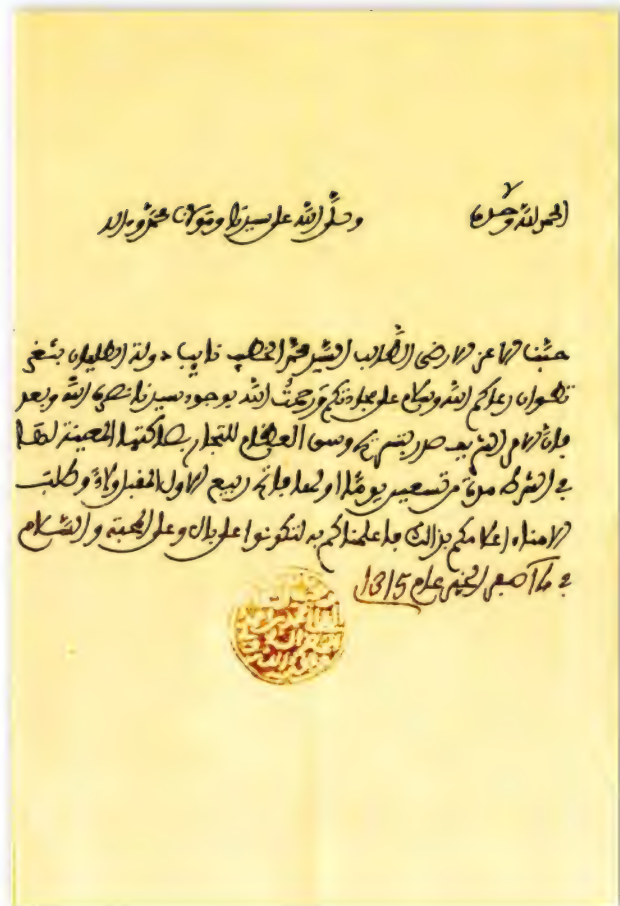 الحمد لله وحده وصلى الله على سيدنا ومولانا محمد وءاله
محبنا الأعز الأرضى الطالب السيد محمد الخطيب نايب دولة الطليان بثغر
تطوان رعاكم الله وسلام على عليكم ورحمت الله بوجود سيدنا نصره الله وبعد
فإن الأمر الشريف صدر بتسريح وسق العظام للتجار بصاكتها المعينة لها
في الشرط مدة من تسعين يوما أولها فاتح ربيع الأول المقبل ولاء وطلب
الأمناء إعلامكم بذالك فأعلمناكم به لتكونوا على بال وعلى المحبة والسلام
في صفر الخير عام 1315